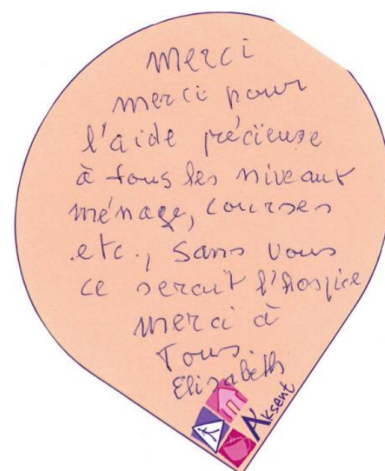 merci
merci pour
l'aide précieuse
à tous les niveaux
ménage, courses
etc., sans vous
ce serait l'hospice
merci à
Tous
Elisabeth
Aksent